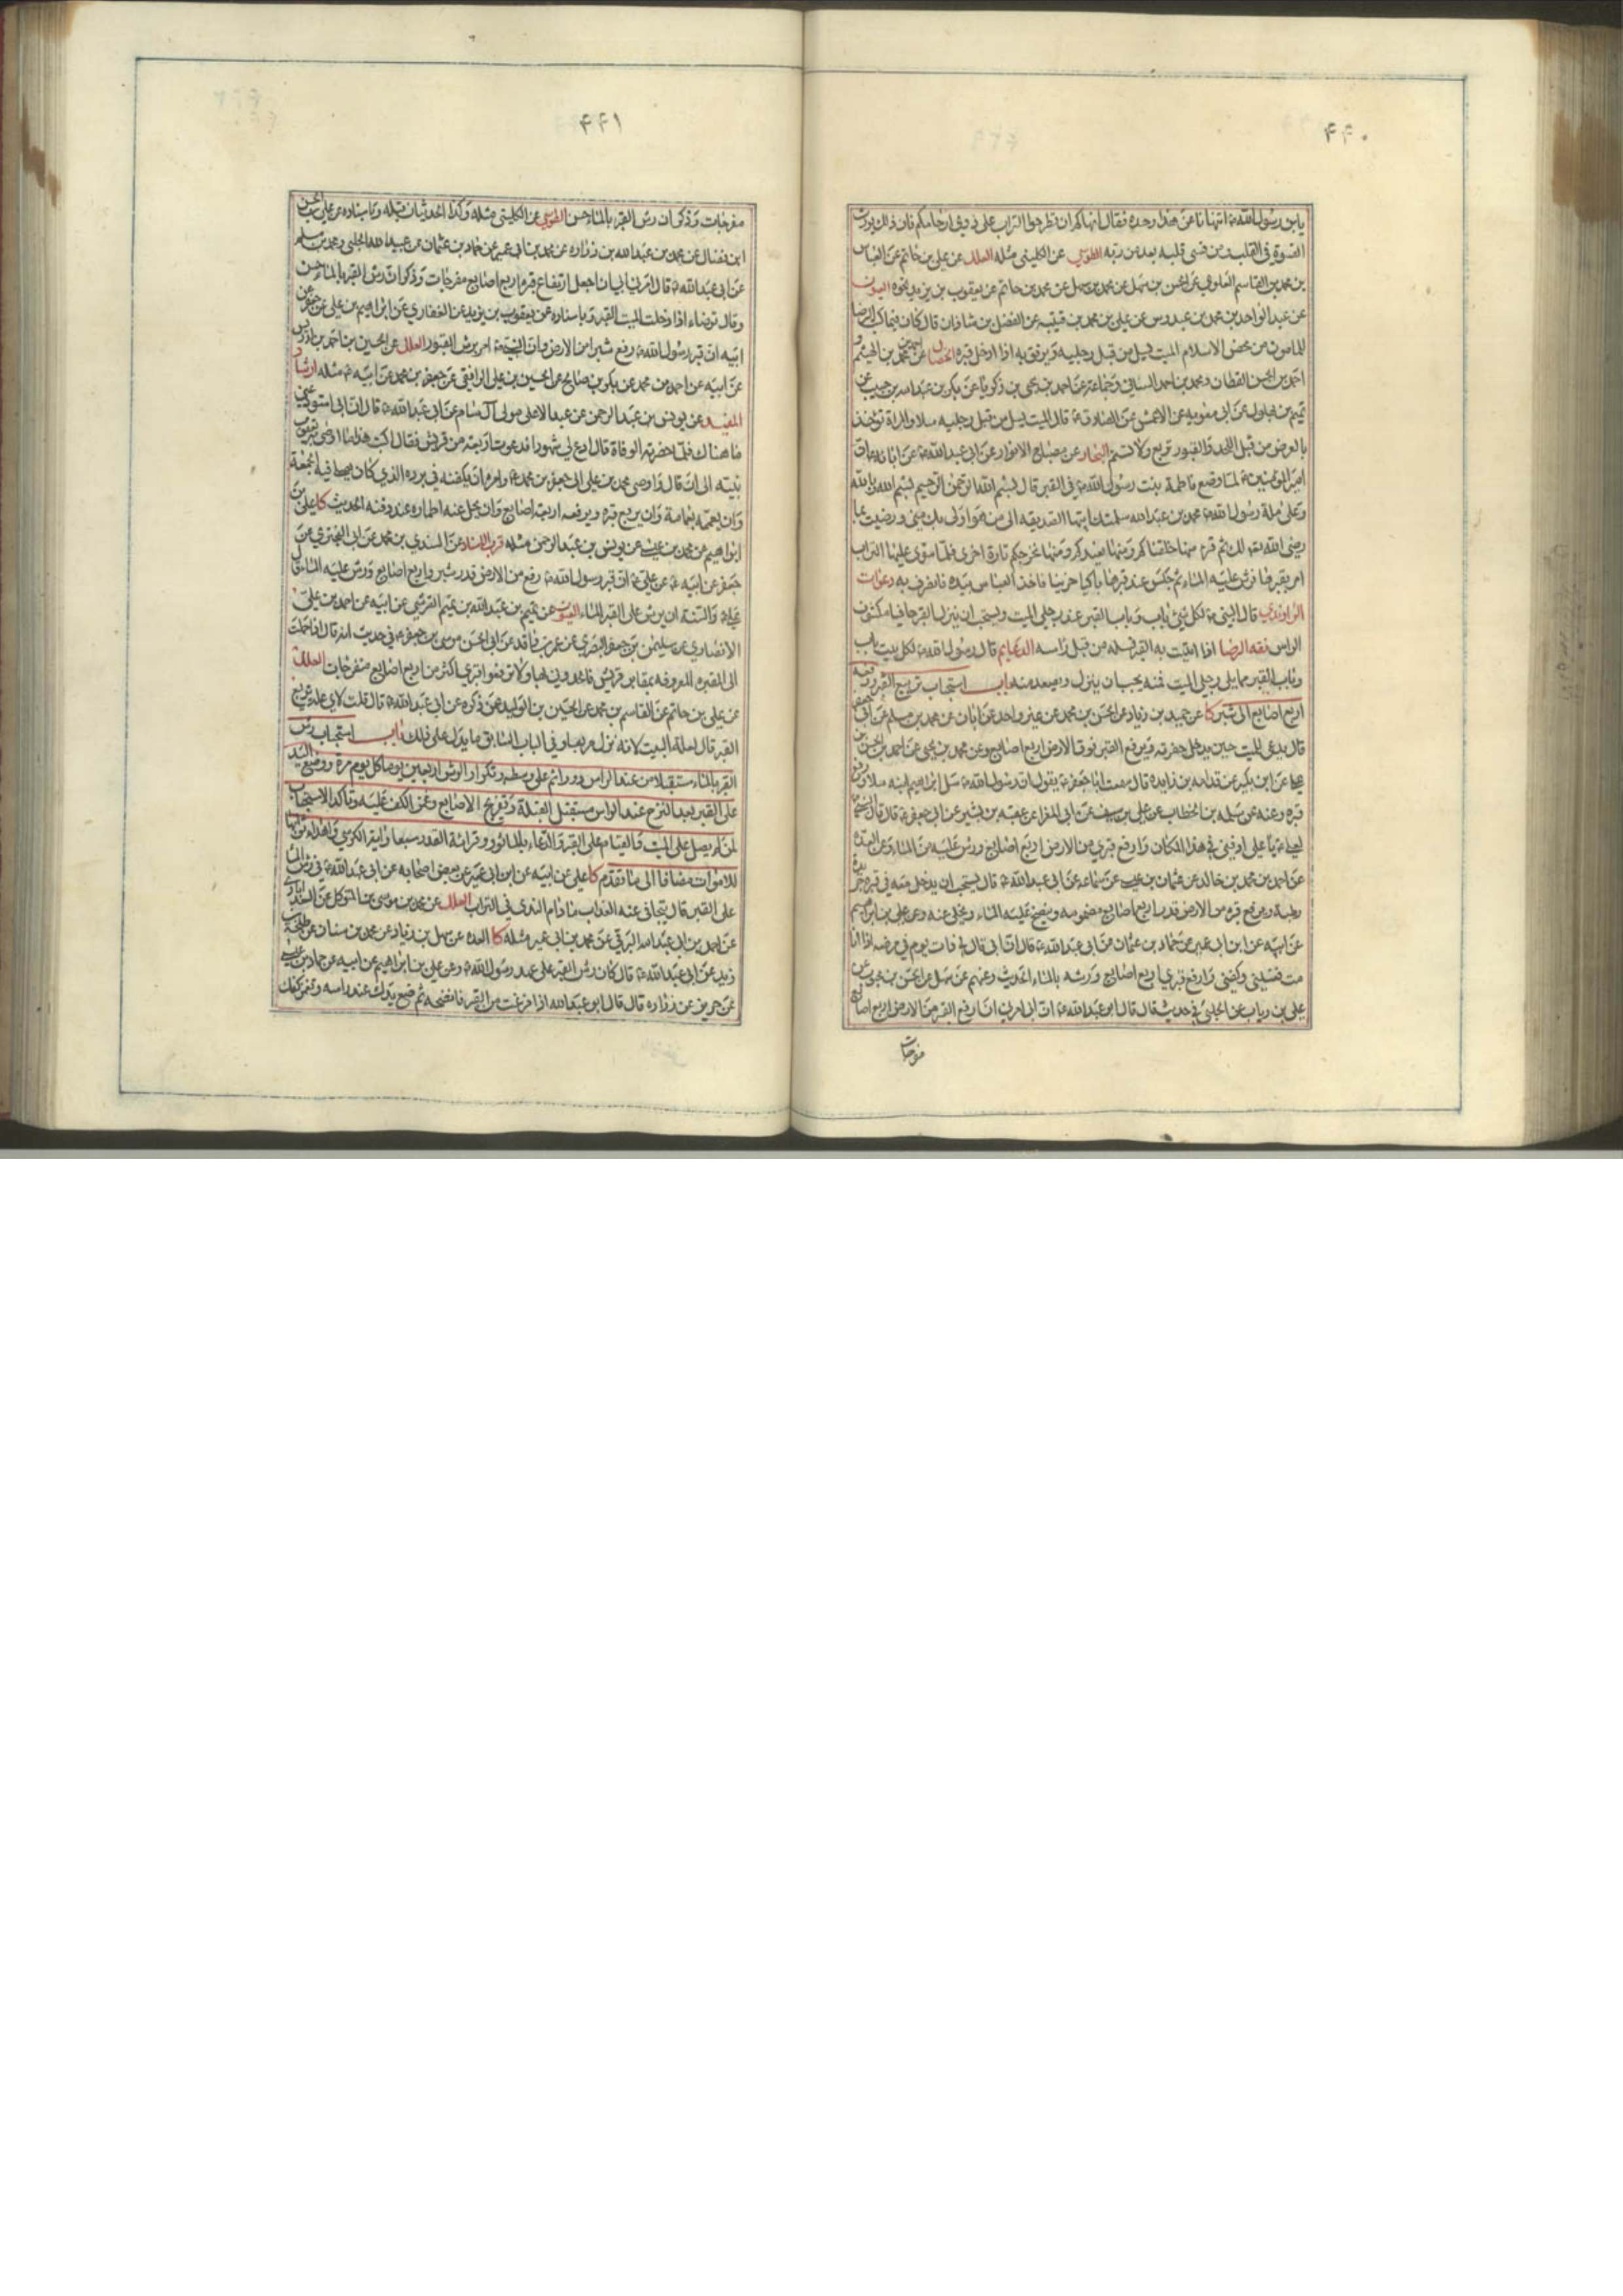 ۴۴۰
يابن رسول الله ص اتنهانا عن هذا وحده فقال انهاكم ان تطرحوا التراب على ذوي ارحامكم فان ذلك يورث
القسوة في القلب ومن قسى قلبه بعد من ربه الطوسي عن الكليني مثله العلل عن علي بن حاتم عن العباس
بن محمد بن القاسم العلوي عن الحسن بن سهل عن محمد بن سهل عن محمد بن حاتم عن يعقوب بن يزيد نحوه العيون
عن عبد الواحد بن محمد بن عبدوس عن علي بن محمد بن قتيبه عن الفضل بن شاذان قال كان فيما كتب الرضا
للمامون من محض الاسلام الميت يسل من قبل رجليه ويرفق به اذا ادخل قبره الخصال عن محمد بن الهيثم و
احمد بن الحسن القطان ومحمد بن احمد السناني وجماعة عن احمد بن يحيى بن زكريا عن بكر بن عبد الله بن حبيب عن
تميم بن بهلول عن ابي معويه عن الاعمش عن الصادق ع قال الميت يسل من قبل رجليه سلا والمراة تؤخذ
بالعرض من قبل اللحد والقبور تربع ولا تسنم البحار عن مصباح الانوار عن ابي عبد الله ع عن ابائه قال ان
امير المؤمنين ع لما وضع فاطمة بنت رسول الله ص في القبر قال بسم الله الرحمن الرحيم بسم الله وبالله
وعلى ملة رسول الله ص محمد بن عبد الله سلمتك ايتها الصديقه الى من هو اولى بك مني ورضيت بما
رضي الله تع لك ثم قرء منها خلقناكم وفيها نعيدكم ومنها نخرجكم تارة اخرى فلما سوى عليها التراب
امر بقبرها فرش عليه الماء ثم جلس عند قبرها باكيا حزينا فاخذ العباس بيده فانصرف به دعوات
الراوندي قال النبي ص لكل شئ باب وباب القبر عند رجلي الميت ويستحب ان ينزل القبر حافيا مكشوف
الراس فقه الرضا اذا اتيت به القبر فسله من قبل راسه الدعايم قال رسول الله ص لكل بيت باب
وباب القبر مما يلي رجلي الميت فمنه يجب ان ينزل ويصعد منه باب استحباب تربيع القبر ورفعه
اربع اصابع الى شبر كا عن حميد بن زياد عن الحسن بن محمد عن غير واحد عن ابان عن محمد بن مسلم عن ابي جعفر
قال يدعى للميت حين يدخل حفرته ويرفع القبر فوق الارض اربع اصابع وعن محمد بن يحيى عن احمد بن الحسن بن
علي عن ابن بكير عن قدامه بن زايده قال سمعت ابا جعفر ع يقول ان رسول الله ص سل ابراهيم ابنه سلا ورفع
قبره وعنه عن سلمه بن الخطاب عن علي بن سيف عن ابي المغرا عن عقبه بن بشير عن ابي جعفر ع قال قال النبي ص
لعلي ع يا علي ادفني في هذا المكان وارفع قبري من الارض اربع اصابع ورش عليه من الماء وعن العدة
عن احمد بن محمد بن خالد عن عثمان بن عيسى عن سماعه عن ابي عبد الله ع قال يستحب ان يدخل معه في قبره جريدة
رطبة ويرفع قبره من الارض قدر اربع اصابع مضمومه وينضح عليه الماء ويخلى عنه وعن علي بن ابراهيم
عن ابيه عن ابن ابي عمير عن حماد بن عثمان عن ابي عبد الله ع قال ان ابي قال لي ذات يوم في مرضه اذا انا
مت فغسلني وكفني وارفع قبري اربع اصابع ورشه بالماء الحديث وعنهم عن سهل عن الحسن بن محبوب عن
علي بن رياب عن الحلبي في حديث قال قال ابو عبد الله ع ان ابي امرني ان ارفع القبر من الارض اربع اصابع
مفرجات
۴۴۱
مفرجات وذكر ان رش القبر بالماء حسن الطوسي عن الكليني مثله وكذا الحديثان قبله وباسناده عن علي بن الحسن
ابن فضال عن محمد بن عبد الله بن زراره عن محمد بن ابي عمير عن حماد بن عثمان عن عبيد الله الحلبي ومحمد بن مسلم
عن ابي عبد الله ع قال امرني ابي ان اجعل ارتفاع قبره اربع اصابع مفرجات وذكر ان رش القبر بالماء حسن
وقال توضاء اذا ادخلت الميت القبر وباسناده عن يعقوب بن يزيد عن الغفاري عن ابراهيم بن علي عن جعفر عن
ابيه ان قبر رسول الله ص رفع شبرا من الارض وان النبي ص امر برش القبور العلل عن الحسين بن احمد بن ادريس
عن ابيه عن احمد بن محمد عن بكر بن صالح عن الحسين بن علي الرافقي عن جعفر بن محمد عن ابيه ع مثله ارشاد
المفيد عن يونس بن عبد الرحمن عن عبد الاعلى مولى آل سام عن ابي عبد الله ع قال ان ابي استودعني
ما هناك فلما حضرته الوفاة قال ادع لي شهودا فدعوت اربعة من قريش فقال اكتب هذا ما اوصى به يعقوب
بنيه الى ان قال واوصى محمد بن علي الى جعفر بن محمد ع وامره ان يكفنه في برده الذي كان يصلي فيه الجمعة
وان يعممه بعمامته وان يربع قبره ويرفعه اربع اصابع وان يحل عنه اطماره عند دفنه الحديث كا علي بن
ابراهيم عن محمد بن عيسى عن يونس بن عبد الرحمن مثله قرب الاسناد عن السندي بن محمد عن ابي البختري عن
جعفر عن ابيه ع عن علي ع ان قبر رسول الله ص رفع من الارض قدر شبر واربع اصابع ورش عليه الماء قال
علي ع والسنة ان يرش على القبر الماء العيون عن تميم بن عبد الله بن تميم القرشي عن ابيه عن احمد بن علي
الانصاري عن سليمن بن جعفر البصري عن عمر بن واقد عن ابي الحسن موسى بن جعفر ع في حديث انه قال اذا حملت
الى المقبره المعروفه بمقابر قريش فالحدوني بها ولا ترفعوا قبري اكثر من اربع اصابع مفرجات العلل
عن علي بن حاتم عن القاسم بن محمد عن الحسين بن الوليد عمن ذكره عن ابي عبد الله ع قال قلت لاي علة يربع
القبر قال لعلة البيت لانه نزل مربعا وفي الباب السابق ما يدل على ذلك باب استحباب رش
القبر بالماء مستقبلا من عند الراس دورا ثم على وسطه وتكرار الرش اربعين يوما كل يوم مرة ووضع اليد
على القبر بعد النزح عند الراس مستقبل القبلة وتفريج الاصابع وغمز الكف عليه وتاكد الاستحباب
لمن لم يصل على الميت والقيام على القبر والدعاء بالماثور وقرائة القدر سبعا واية الكرسي واهداء ثوابها
للاموات مضافا الى ما تقدم كا علي عن ابيه عن ابن ابي عمير عن بعض اصحابه عن ابي عبد الله ع في رش الماء
على القبر قال يتجافى عنه العذاب ما دام الندى في التراب العلل عن محمد بن موسى بن المتوكل عن السعدابادي
عن احمد بن ابي عبد الله البرقي عن محمد بن ابي عمير مثله كا العده عن سهل بن زياد عن محمد بن سنان عن طلحة بن
زيد عن ابي عبد الله ع قال كان رش القبر على عهد رسول الله ص وعن علي بن ابراهيم عن ابيه عن حماد بن عيسى
عن حريز عن زراره قال قال ابو عبد الله اذا فرغت من القبر فانضحه ثم ضع يدك عند راسه وتغمز كفك